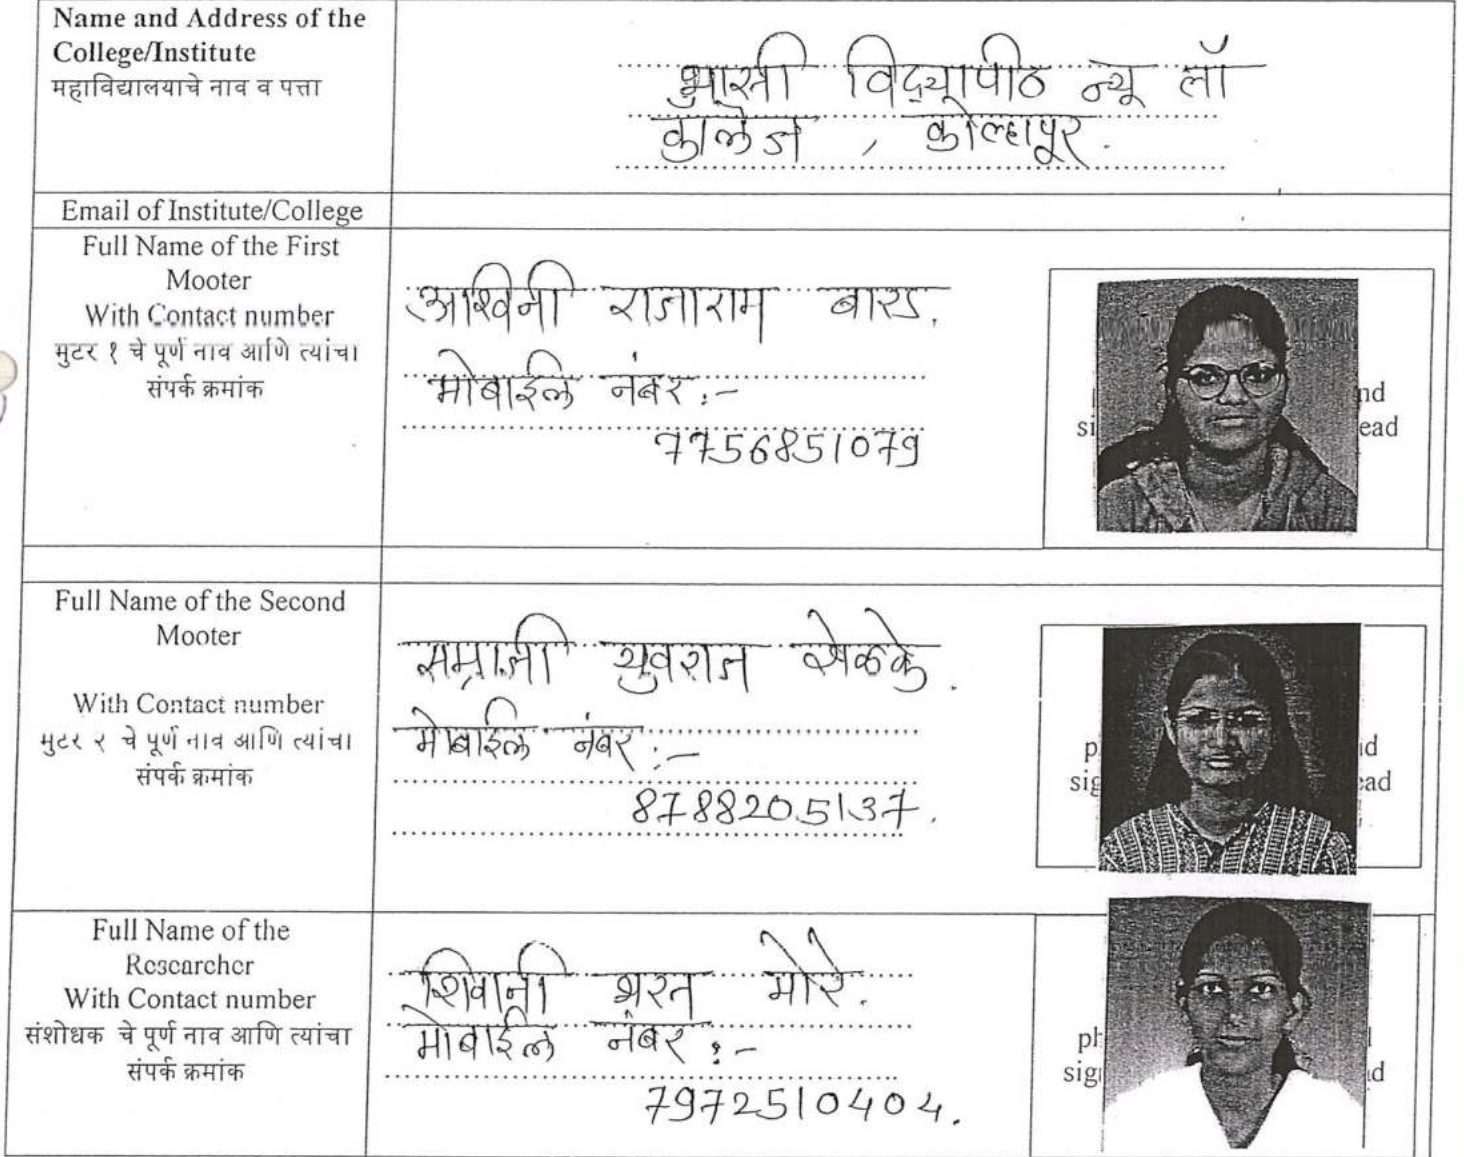 Name and Address of the
College/Institute
महाविद्यालयाचे नाव व पत्ता
भारती विद्यापीठ न्यू लॉ
कॉलेज , कोल्हापूर.
Email of Institute/College
Full Name of the First
Mooter
With Contact number
मुटर १ चे पूर्ण नाव आणि त्यांचा
संपर्क क्रमांक
अश्विनी राजाराम बारड.
मोबाईल नंबर :-
7756851079
nd
si
ead
Full Name of the Second
Mooter
With Contact number
मुटर २ चे पूर्ण नाव आणि त्यांचा
संपर्क क्रमांक
सम्राज्ञी युवराज शेळके.
मोबाईल नंबर :-
8788205137.
p
id
sig
ead
Full Name of the
Researcher
With Contact number
संशोधक चे पूर्ण नाव आणि त्यांचा
संपर्क क्रमांक
शिवानी भरत मोरे.
मोबाईल नंबर :-
7972510404.
ph
sig
d